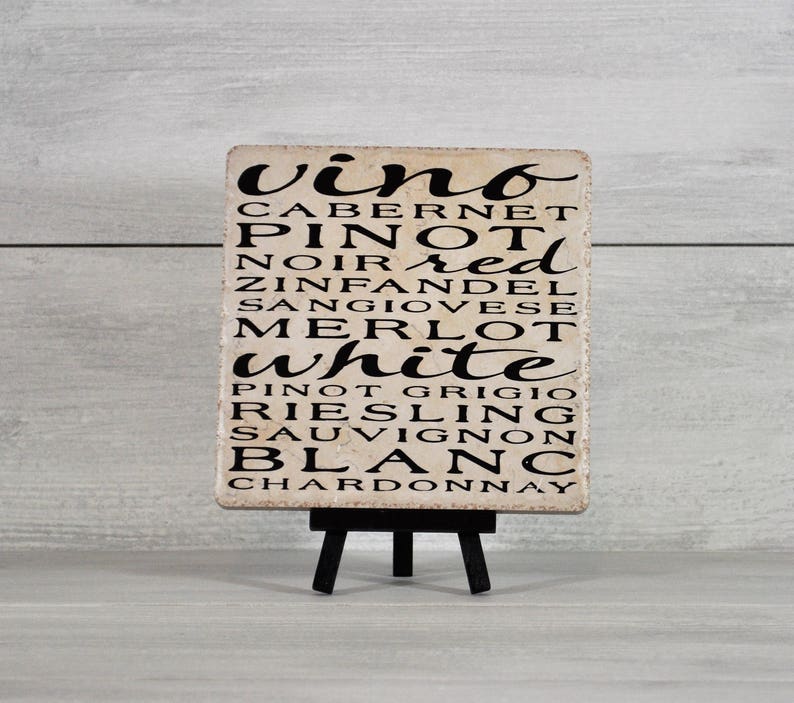 vino
CABERNET
PINOT
NOIR red
ZINFANDEL
SANGIOVESE
MERLOT
white
PINOT GRIGIO
RIESLING
SAUVIGNON
BLANC
CHARDONNAY